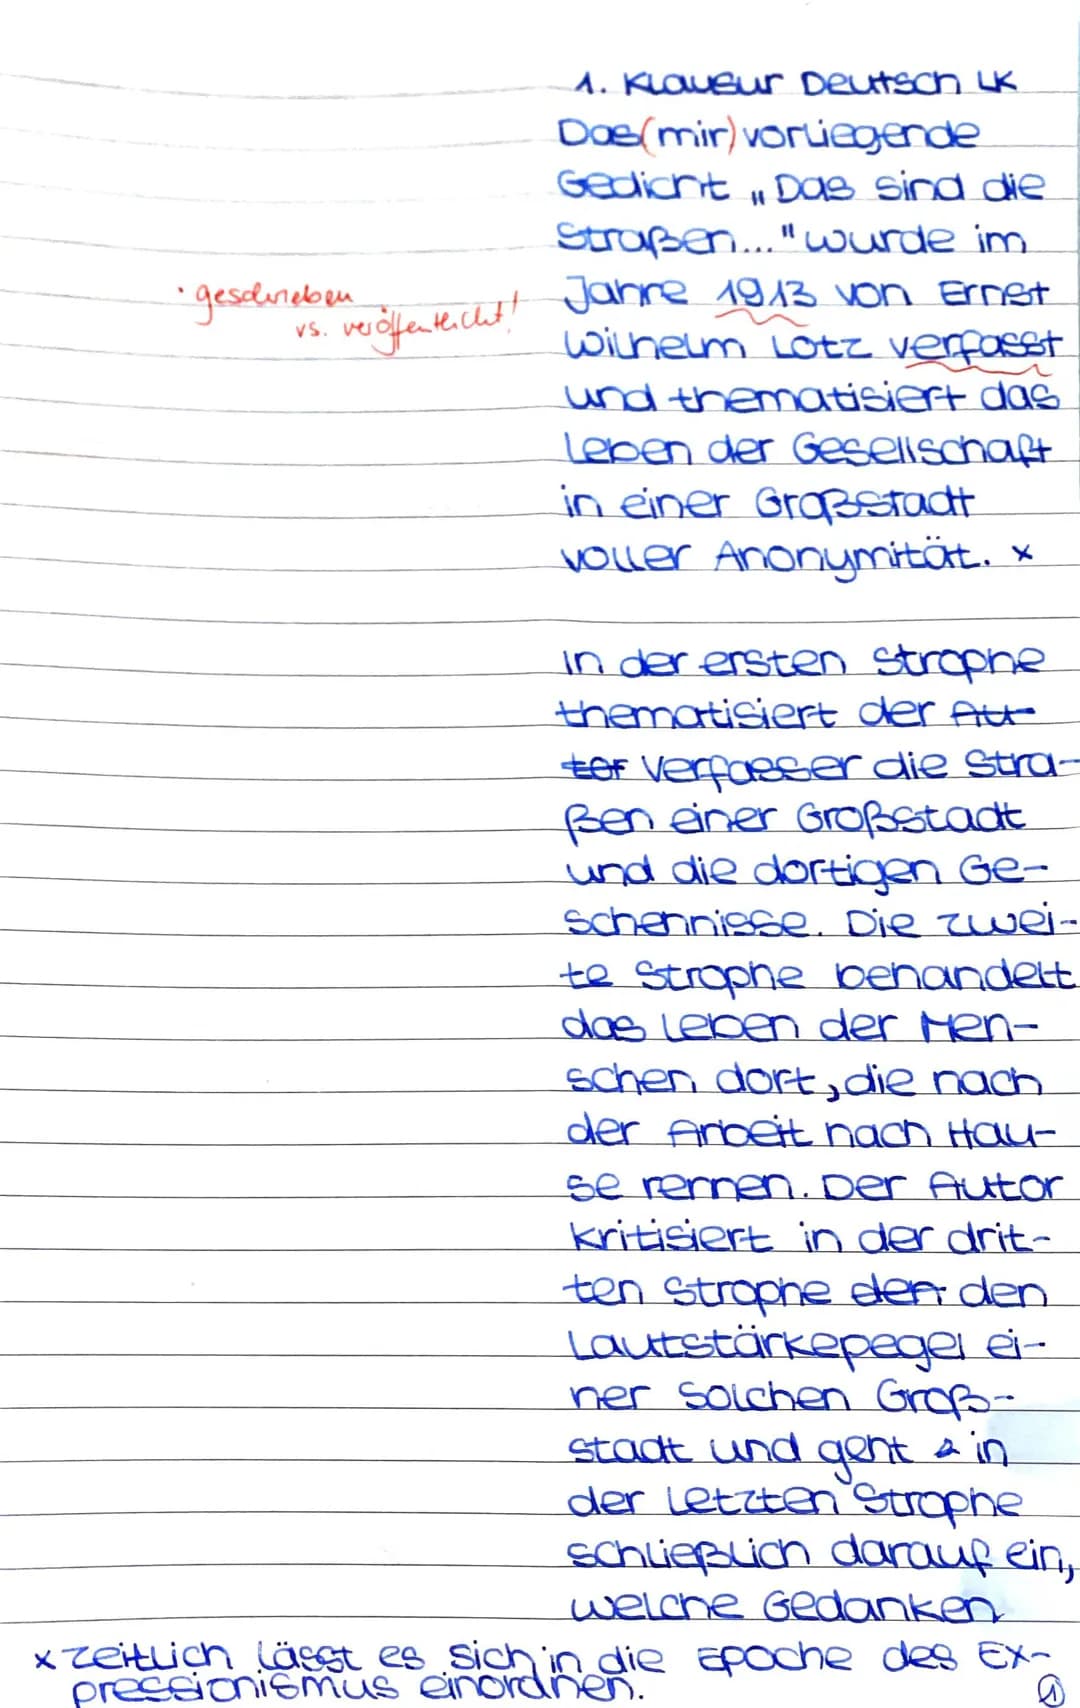 1. Klausur Deutsch LK
Das (mir) vorliegende
Gedicht „Das sind die
Straßen..." wurde im
· geschrieben
vs. veröffentlicht!
Jahre 1913 von Ernst
Wilhelm Lotz verfasst
und thematisiert das
Leben der Gesellschaft
in einer Großstadt
voller Anonymität. x
In der ersten Strophe
thematisiert der Au-
tor Verfasser die Stra-
ßen einer Großstadt
und die dortigen Ge-
schehnisse. Die zwei-
te Strophe behandelt
das Leben der Men-
schen dort, die nach
der Arbeit nach Hau-
se rennen. Der Autor
kritisiert in der drit-
ten Strophe den den
Lautstärkepegel ei-
ner solchen Groß-
stadt und geht in
der letzten Strophe
schließlich darauf ein,
welche Gedanken
x zeitlich lässt es sich in die Epoche des Ex-
pressionismus einordnen.
1